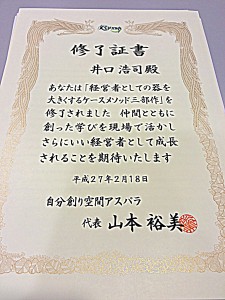 修了証書
井口浩司殿
あなたは「経営者としての器を
大きくするケースメソッド三部作」を
修了されました 仲間とともに
創った学びを現場で活かし
さらにいい経営者として成長
されることを期待いたします
平成27年2月18日
自分創り空間アスパラ
代表 山本裕美